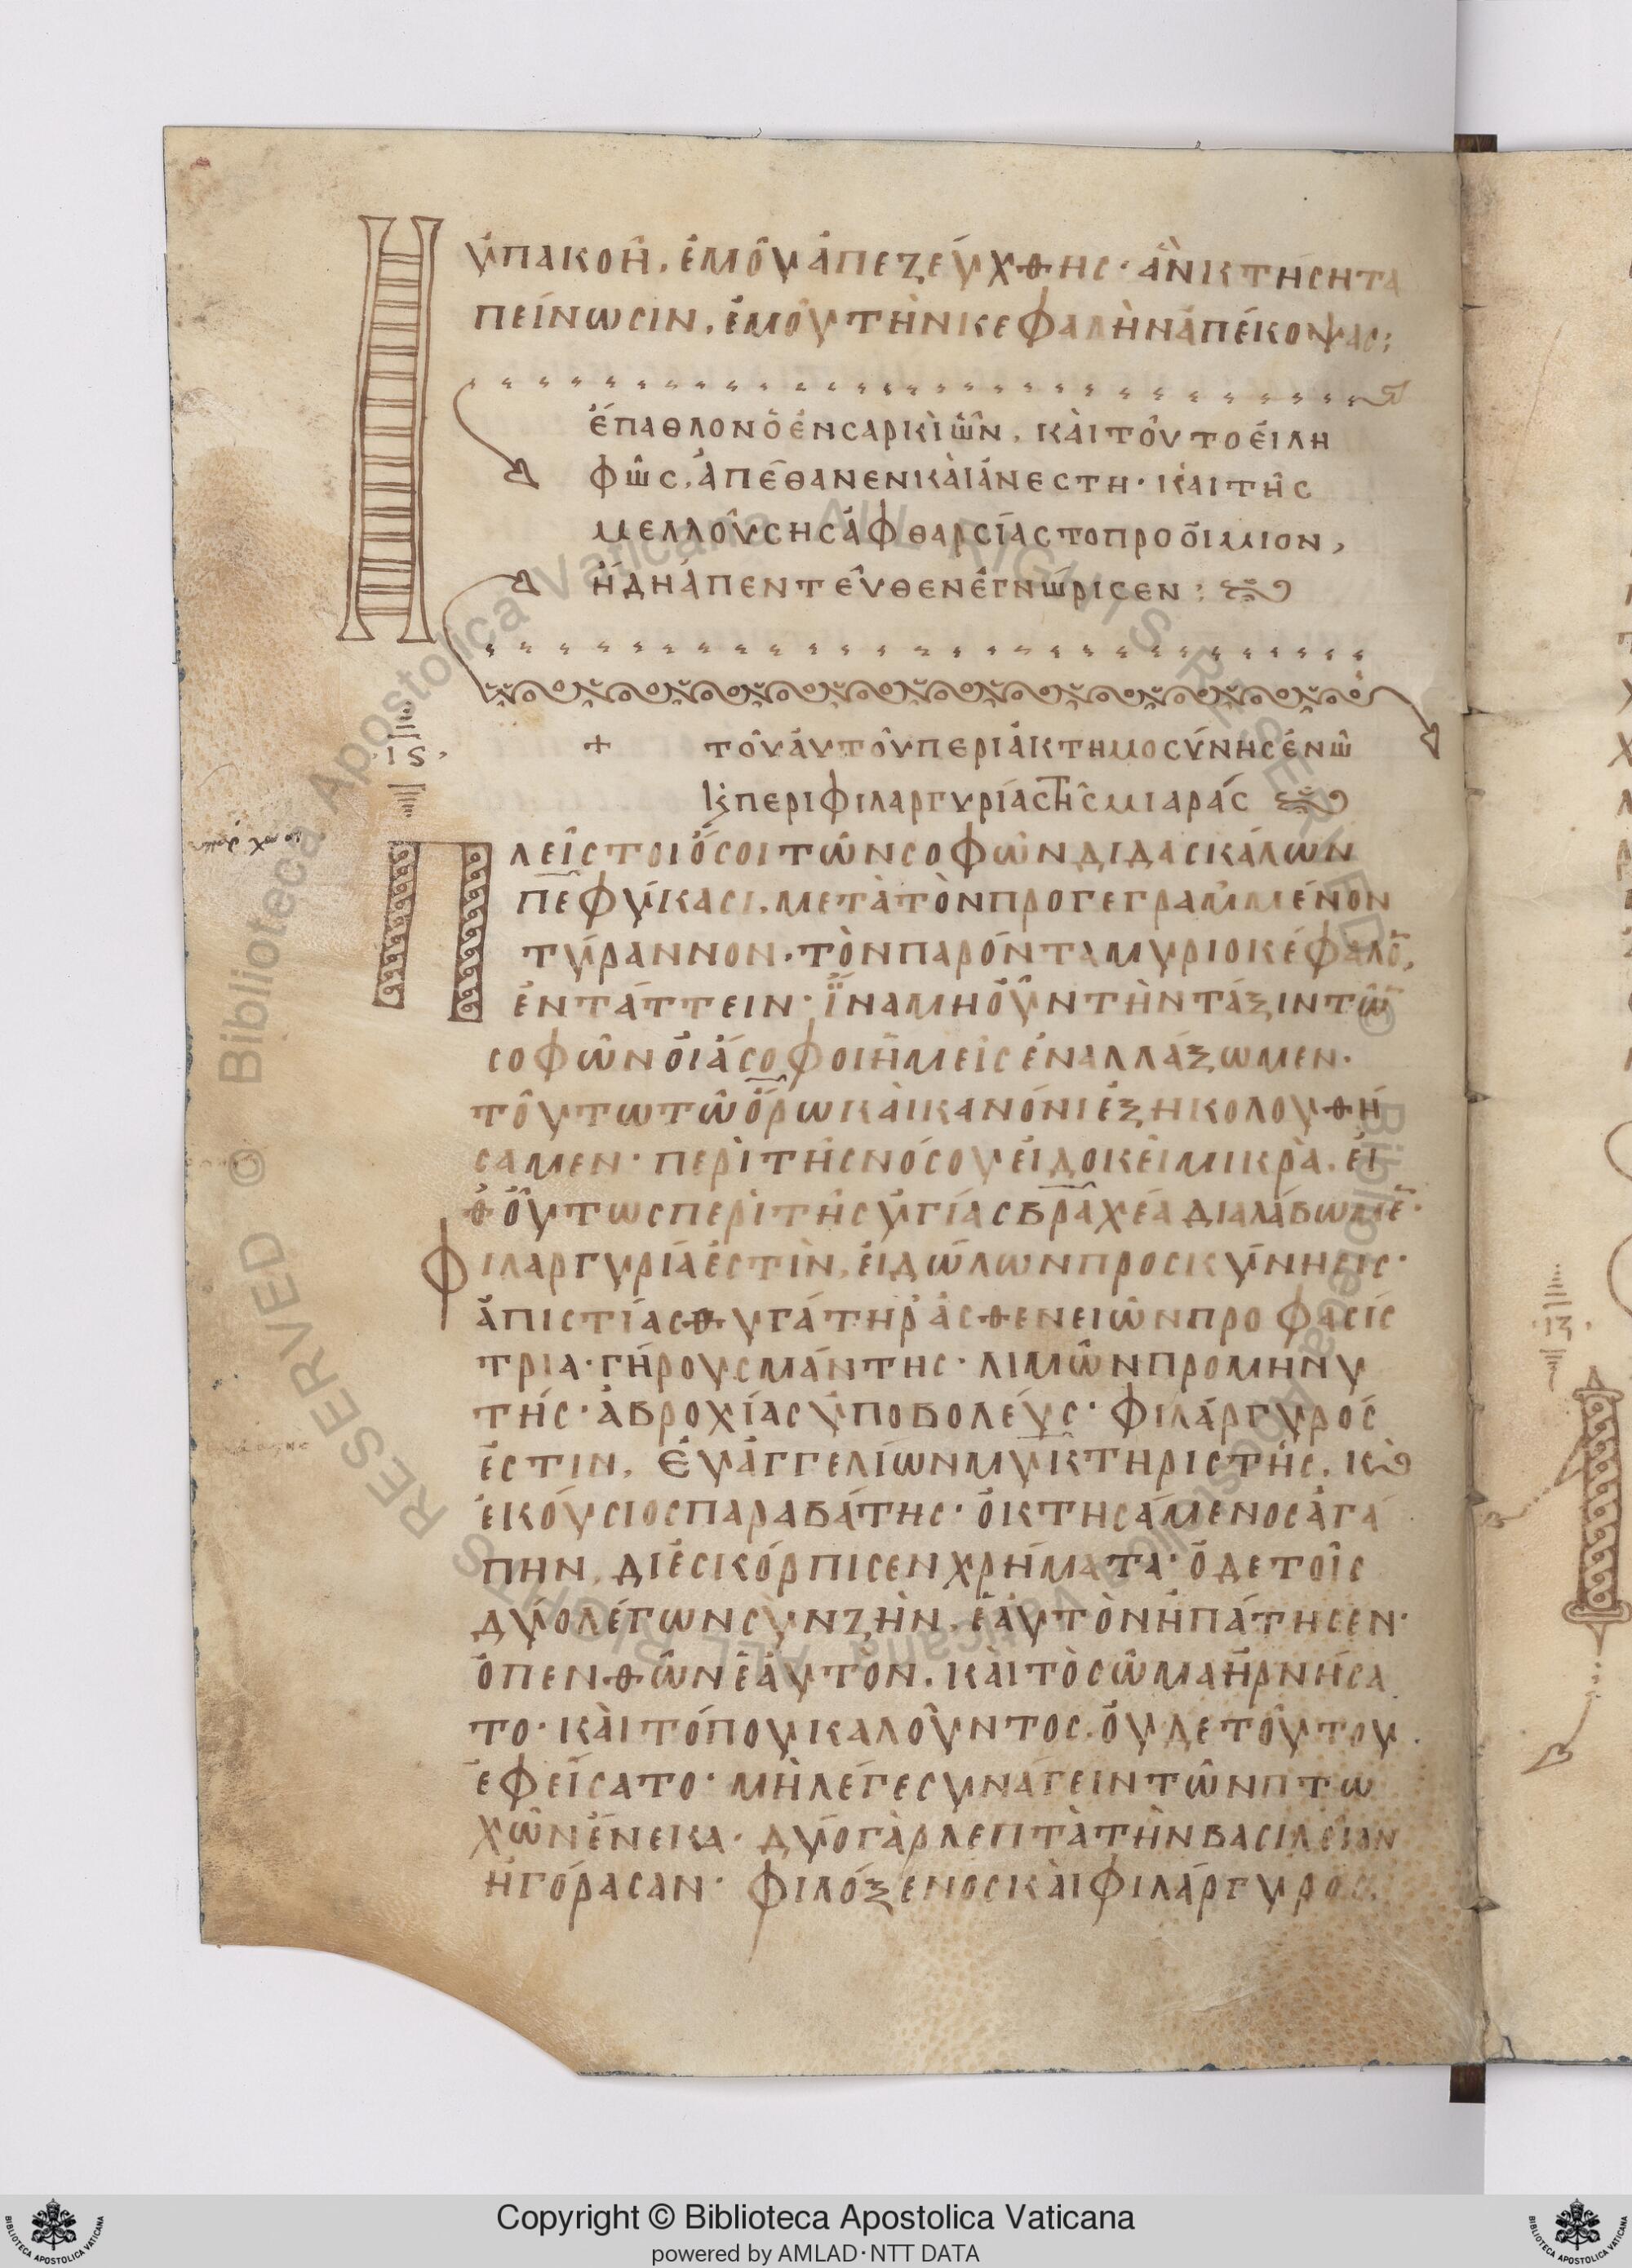 ὑπακοὴ, ἐμοῦ ἀπεζεύχθης· ἂν κτήσητα
πείνωσιν, ἐμοῦ τὴν κεφαλὴν ἀπέκοψας:
ἔπαθλον ὁ ἐν σαρκὶ ὢν, καὶ τοῦτο εἰλη
φὼς, ἀπέθανεν καὶ ἀνέστη· καὶ τῆς
μελλούσης ἀφθαρσίας τὸ προοίμιον,
ἤδη ἀπεντεῦθεν ἐγνώρισεν:
+ τοῦ αὐτοῦ περὶ ἀκτημοσύνης ἐν ὧ
κ̣ περὶ φιλαργυρίας τῆς μιαρᾶς
·ιϛ·
Πλεῖστοι ὅσοι τῶν σοφῶν διδασκάλων
πεφύκασι, μετὰ τὸν προγεγραμμένον
τύραννον, τὸν παρόντα μυριοκέφαλο̄,
ἐντάττειν· ἵνα μὴ οὖν τὴν τάξιν τῶ̄
σοφῶν οἱ ἄσοφοι ἡμεῖς ἐναλλάξωμεν·
τούτω τῶ ὅρω καὶ κανόνι ἐξηκολουθή
σαμεν· περὶ τῆς νόσου εἰ δοκεῖ μικρὰ, εἰ
θ᾽ οὕτως περὶ τῆς ὑγίας βραχέα διαλάβωμε̄·
Φιλαργυρία ἐστὶν, εἰδώλων προσκύνησις·
ἀπιστίας θυγάτηρ ἀσθενειῶν προφασίς
τρια· γήρους μάντης· λιμῶν προμηνυ
τής· ἀβροχίας ὑποβολεύς· φιλάργυρός
ἐστιν, εὐαγγελίων μυκτηριστής, κ̀
ἑκούσιος παραβάτης· ὁ κτησάμενος ἀγά
πην, διεσκόρπισεν χρήματα· ὁ δὲ τοῖς
δυὸ λέγων συνζῆν, ἑαυτὸν ἠπάτησεν·
ὁ πενθῶν ἑαυτὸν, καὶ τὸ σῶμα ἠρνήσα
το· καὶ τόπου καλοῦντος, οὐδὲ τούτου
ἐφείσατο· μὴ λέγε συνάγειν τῶν πτω
χῶν ἕνεκα· δύο γὰρ λεπτὰ τὴν βασιλείαν
ἠγόρασαν· φιλόξενος καὶ φιλάργυρος,
·ιζ·
Copyright © Biblioteca Apostolica Vaticana
powered by AMLAD·NTT DATA